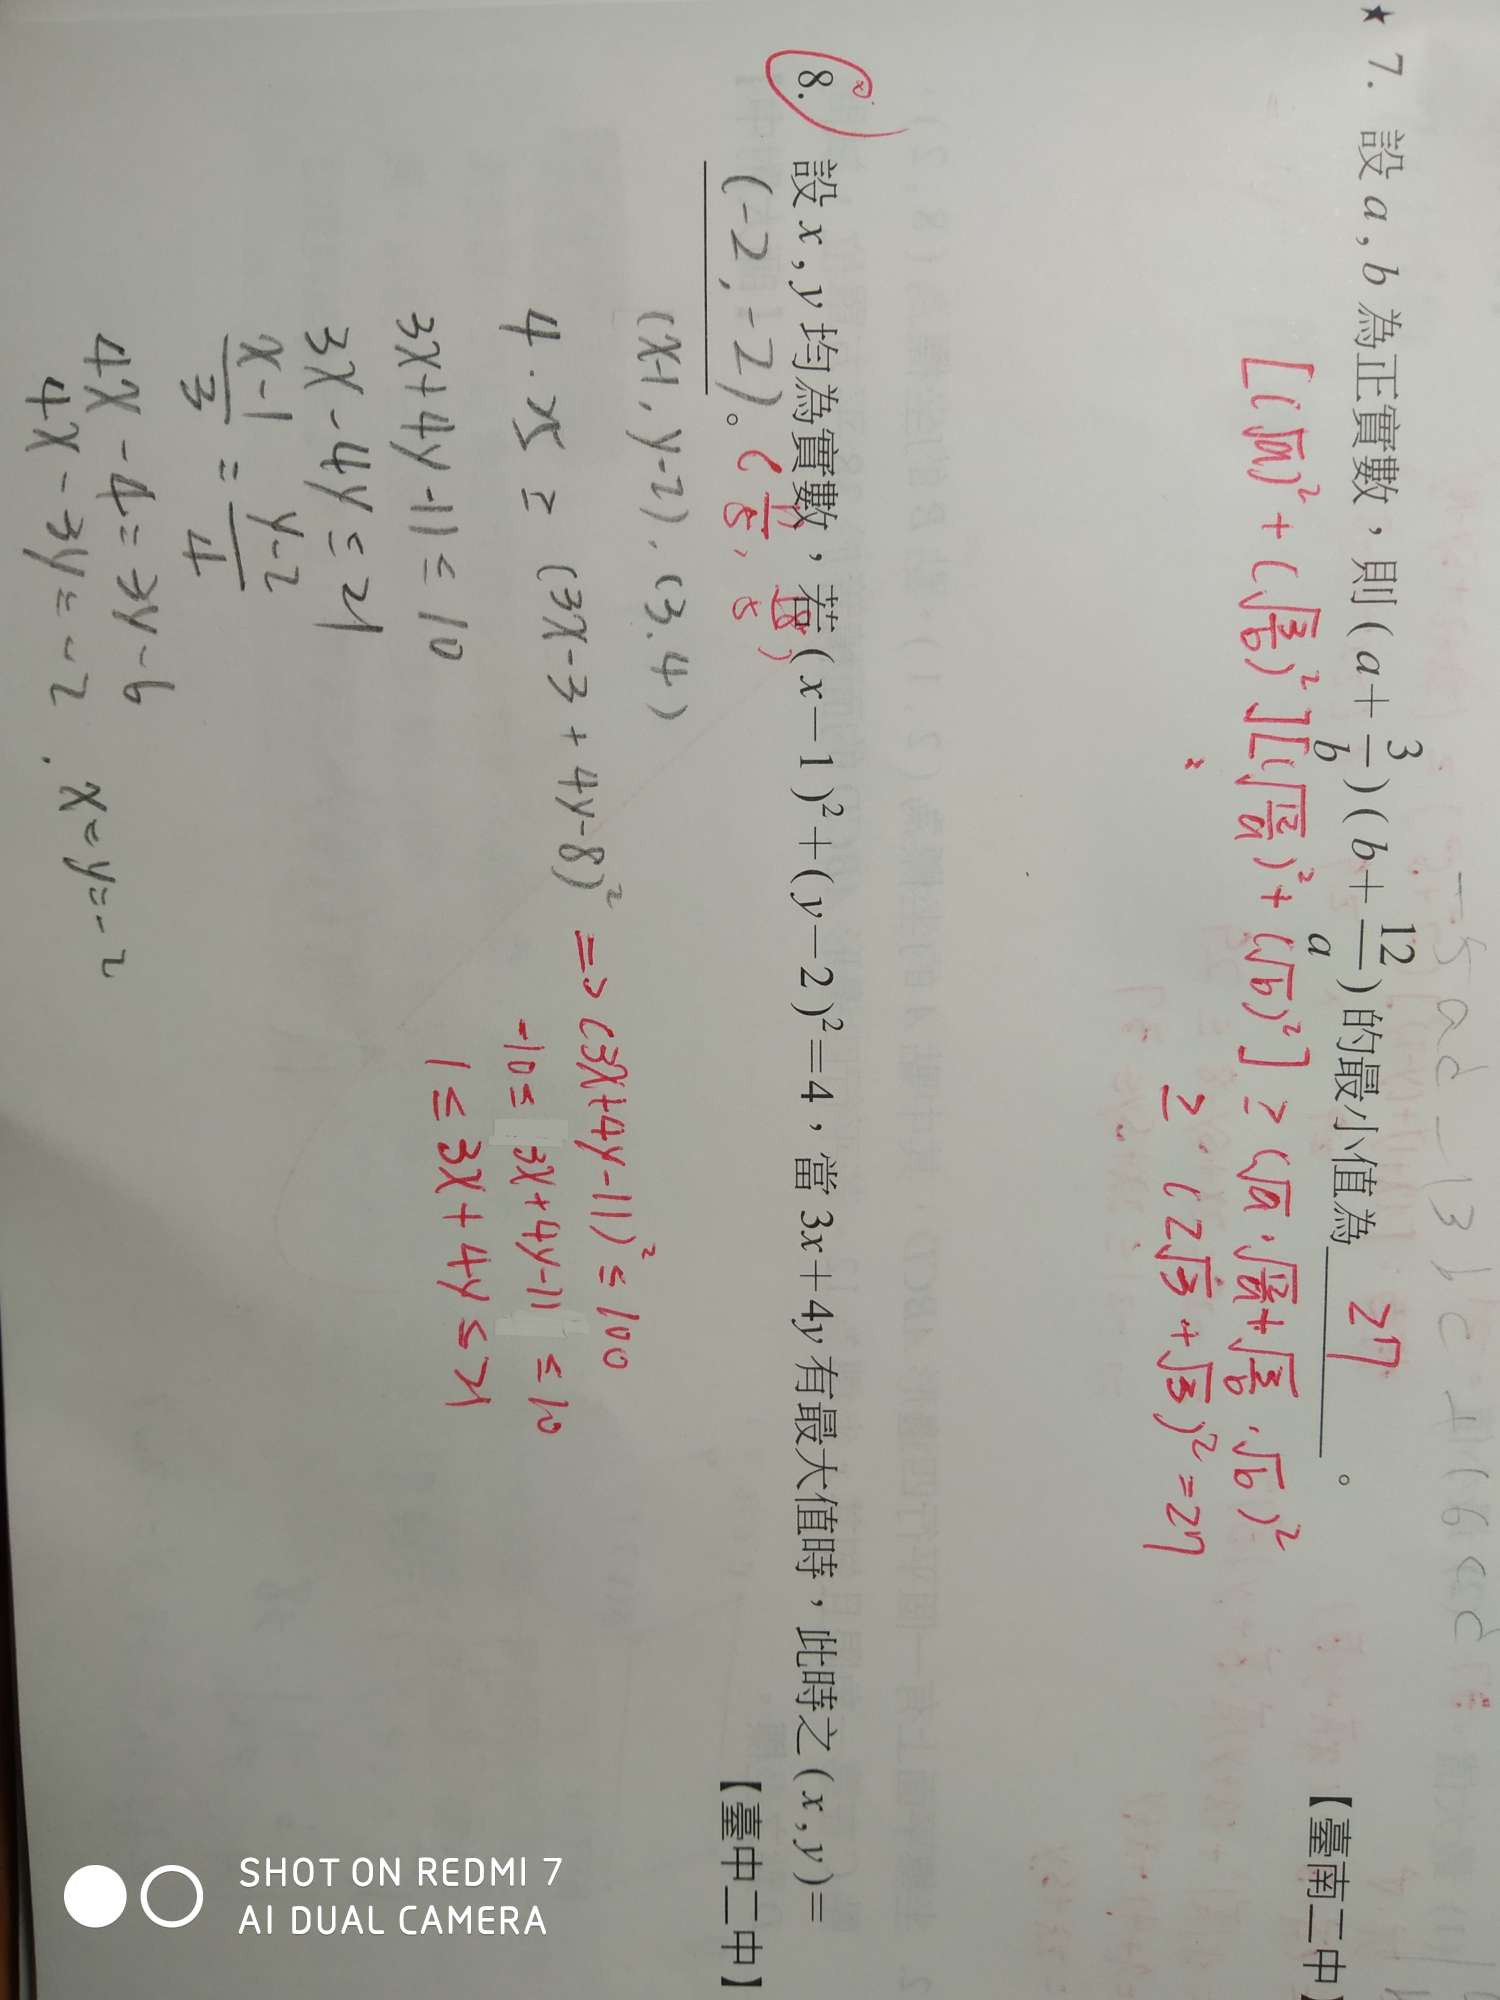 ★ 7. 設 a , b 為正實數，則 ( a + 3/b ) ( b + 12/a ) 的最小值為 27 。
【臺南二中】
[(√a)² + (√(3/b))²][(√(12/a))² + (√b)²] ≥ (√a · √(12/a) + √(3/b) · √b)²
≥ (2√3 + √3)² = 27
8. 設 x , y 均為實數，若 ( x − 1 )² + ( y − 2 )² = 4，當 3x + 4y 有最大值時，此時之 ( x , y ) =
(-2, -2) 。 (11/5, 18/5)
【臺中二中】
(x-1, y-2), (3, 4)
(3x-3 + 4y-8)² => (3x+4y-11)² ≤ 100
-10 ≤ 3x+4y-11 ≤ 10
3x+4y-11 ≤ 10
1 ≤ 3x + 4y ≤ 21
3x - 4y ≤ 21
(x-1)/3 = (y-2)/4
4x - 4 = 3y - 6
4x - 3y = -2 . x = y = -2
SHOT ON REDMI 7
AI DUAL CAMERA